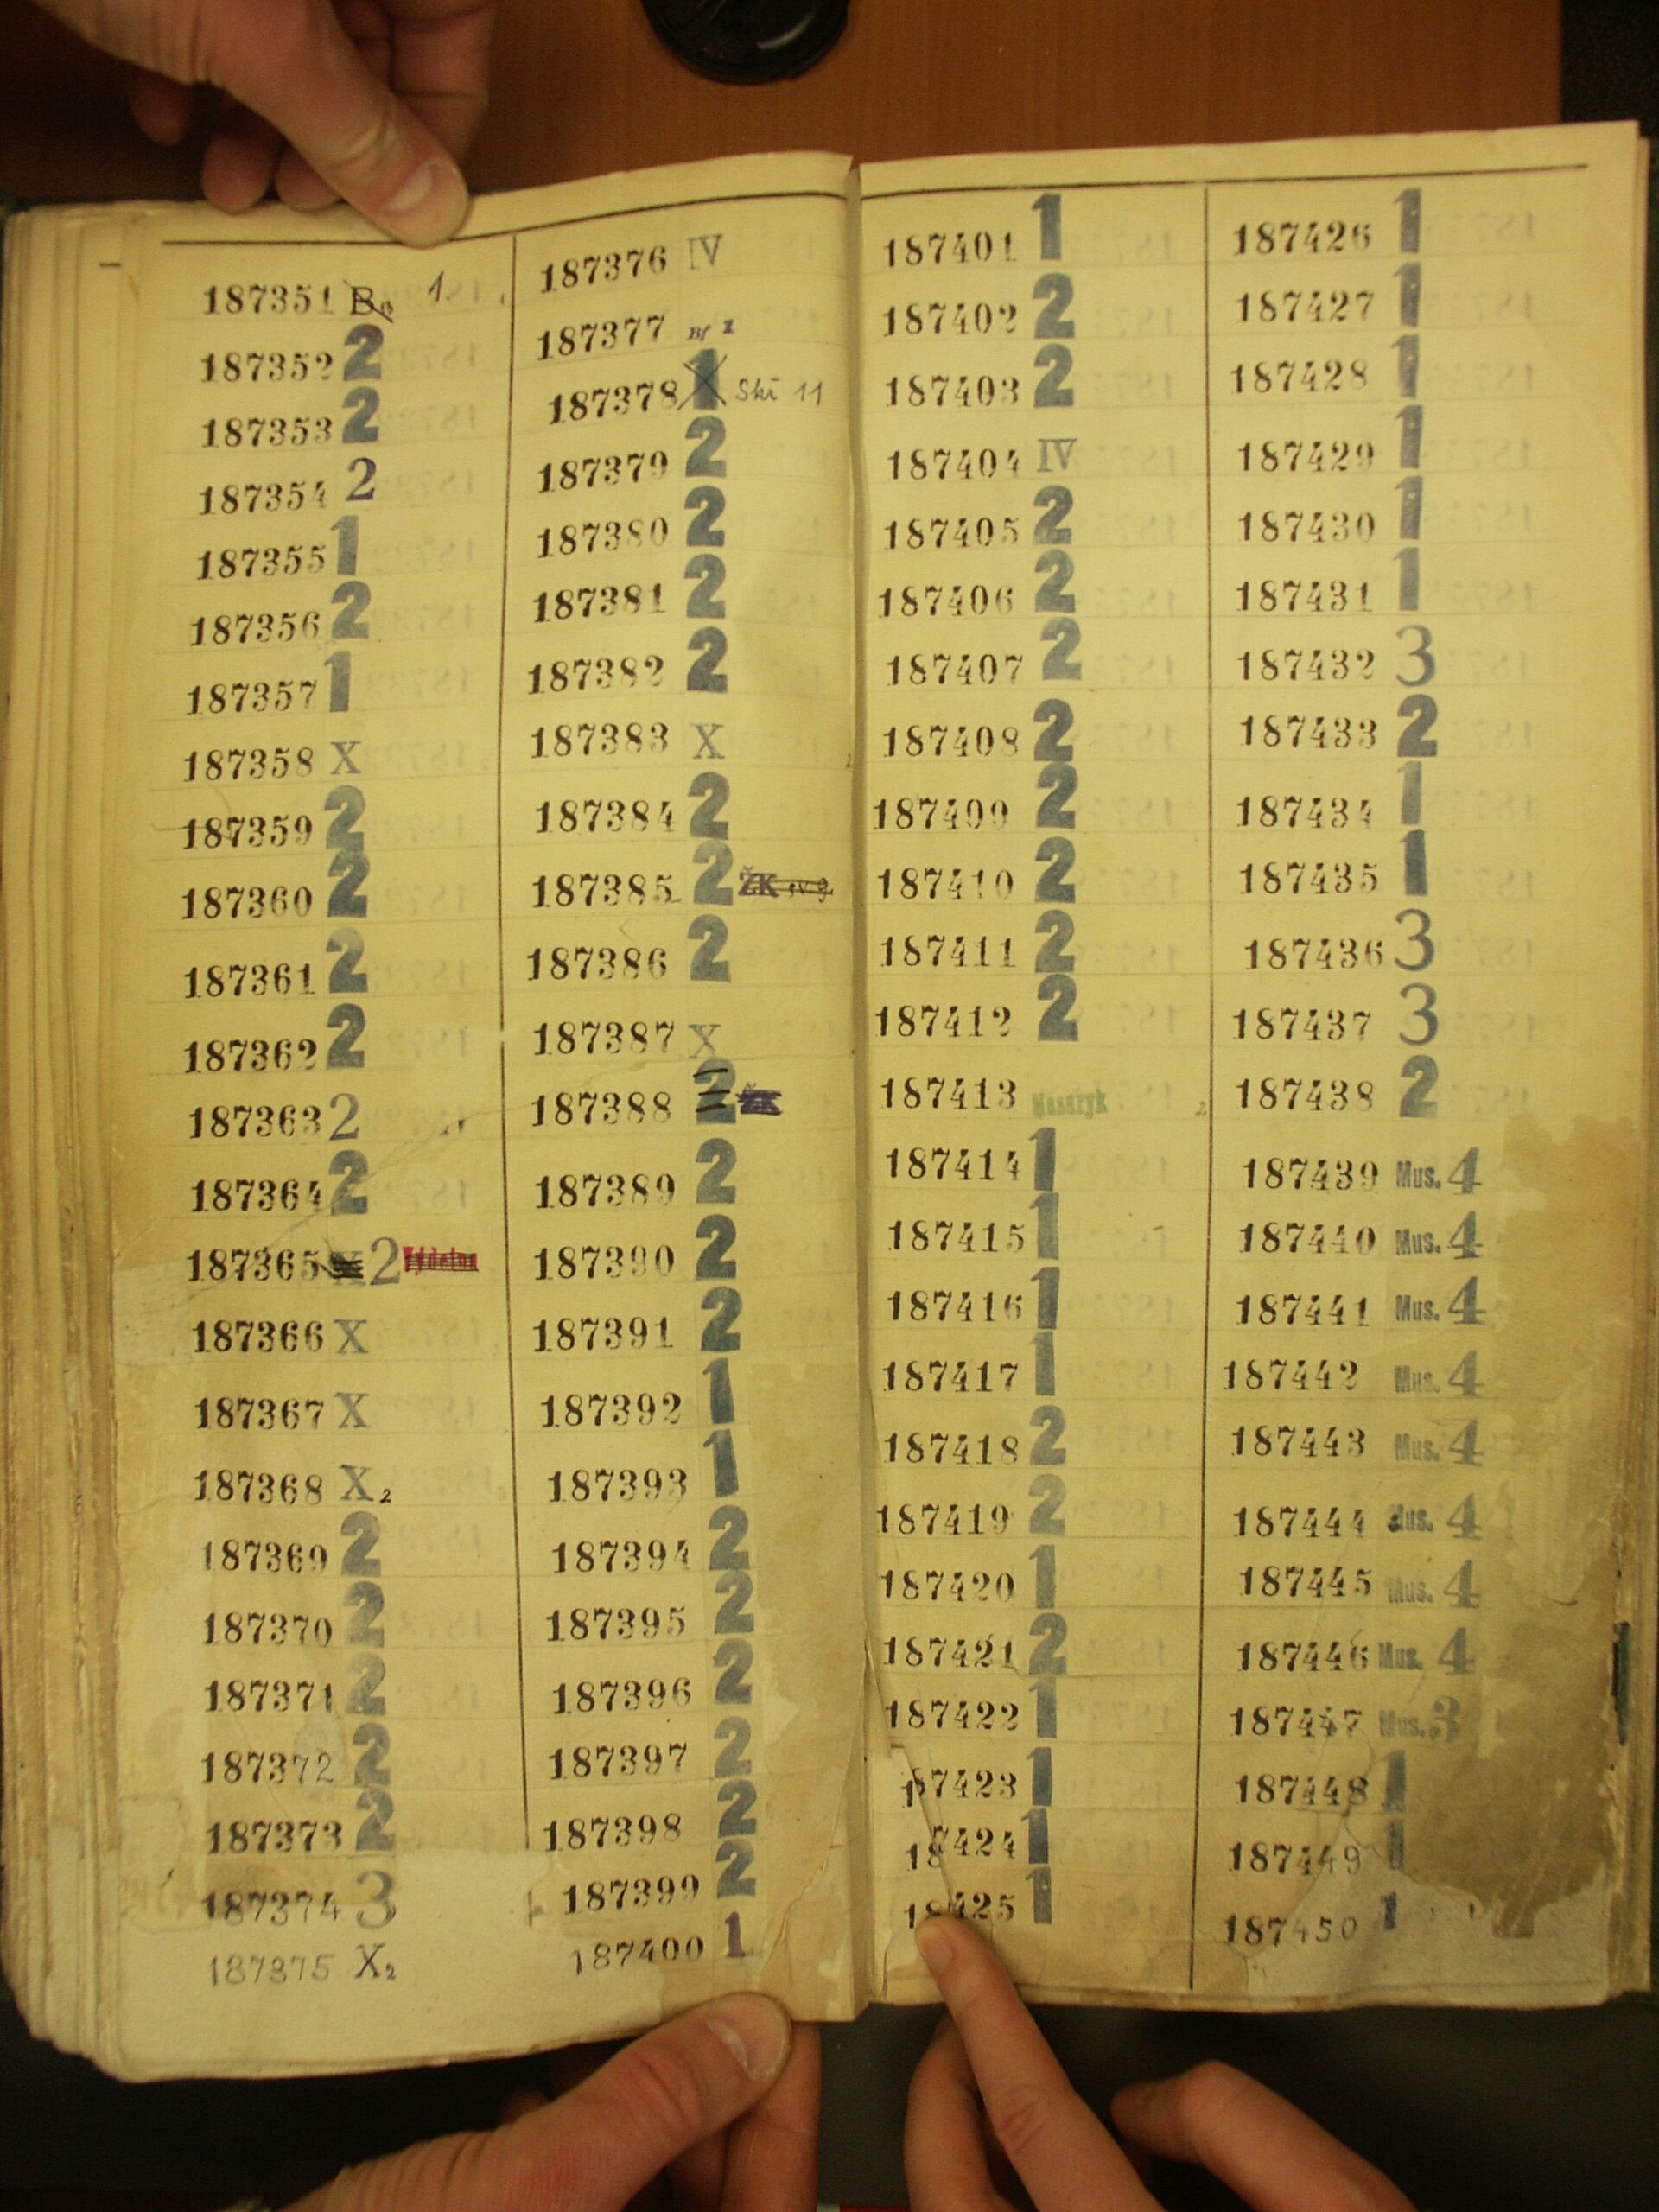 187351 1
187352 2
187353 2
187354 2
187355 1
187356 2
187357 1
187358 X
187359 2
187360 2
187361 2
187362 2
187363 2
187364 2
187365 2
187366 X
187367 X
187368 X2
187369 2
187370 2
187371 2
187372 2
187373 2
187374 3
187375 X2
187376 IV
187377 Bf I
187378 1 Skř 11
187379 2
187380 2
187381 2
187382 2
187383 X
187384 2
187385 2 ŽK
187386 2
187387 X
187388 2 ŽK
187389 2
187390 2
187391 2
187392 1
187393 1
187394 2
187395 2
187396 2
187397 2
187398 2
187399 2
187400 1
187401 1
187402 2
187403 2
187404 IV
187405 2
187406 2
187407 2
187408 2
187409 2
187410 2
187411 2
187412 2
187413 Masaryk
187414 1
187415 1
187416 1
187417 1
187418 2
187419 2
187420 1
187421 2
187422 1
187423 1
187424 1
18425 1
187426 1
187427 1
187428 1
187429 1
187430 1
187431 1
187432 3
187433 2
187434 1
187435 1
187436 3
187437 3
187438 2
187439 Mus. 4
187440 Mus. 4
187441 Mus. 4
187442 Mus. 4
187443 Mus. 4
187444 Mus. 4
187445 Mus. 4
187446 Mus. 4
187447 Mus. 3
187448 1
187449 1
187450 1